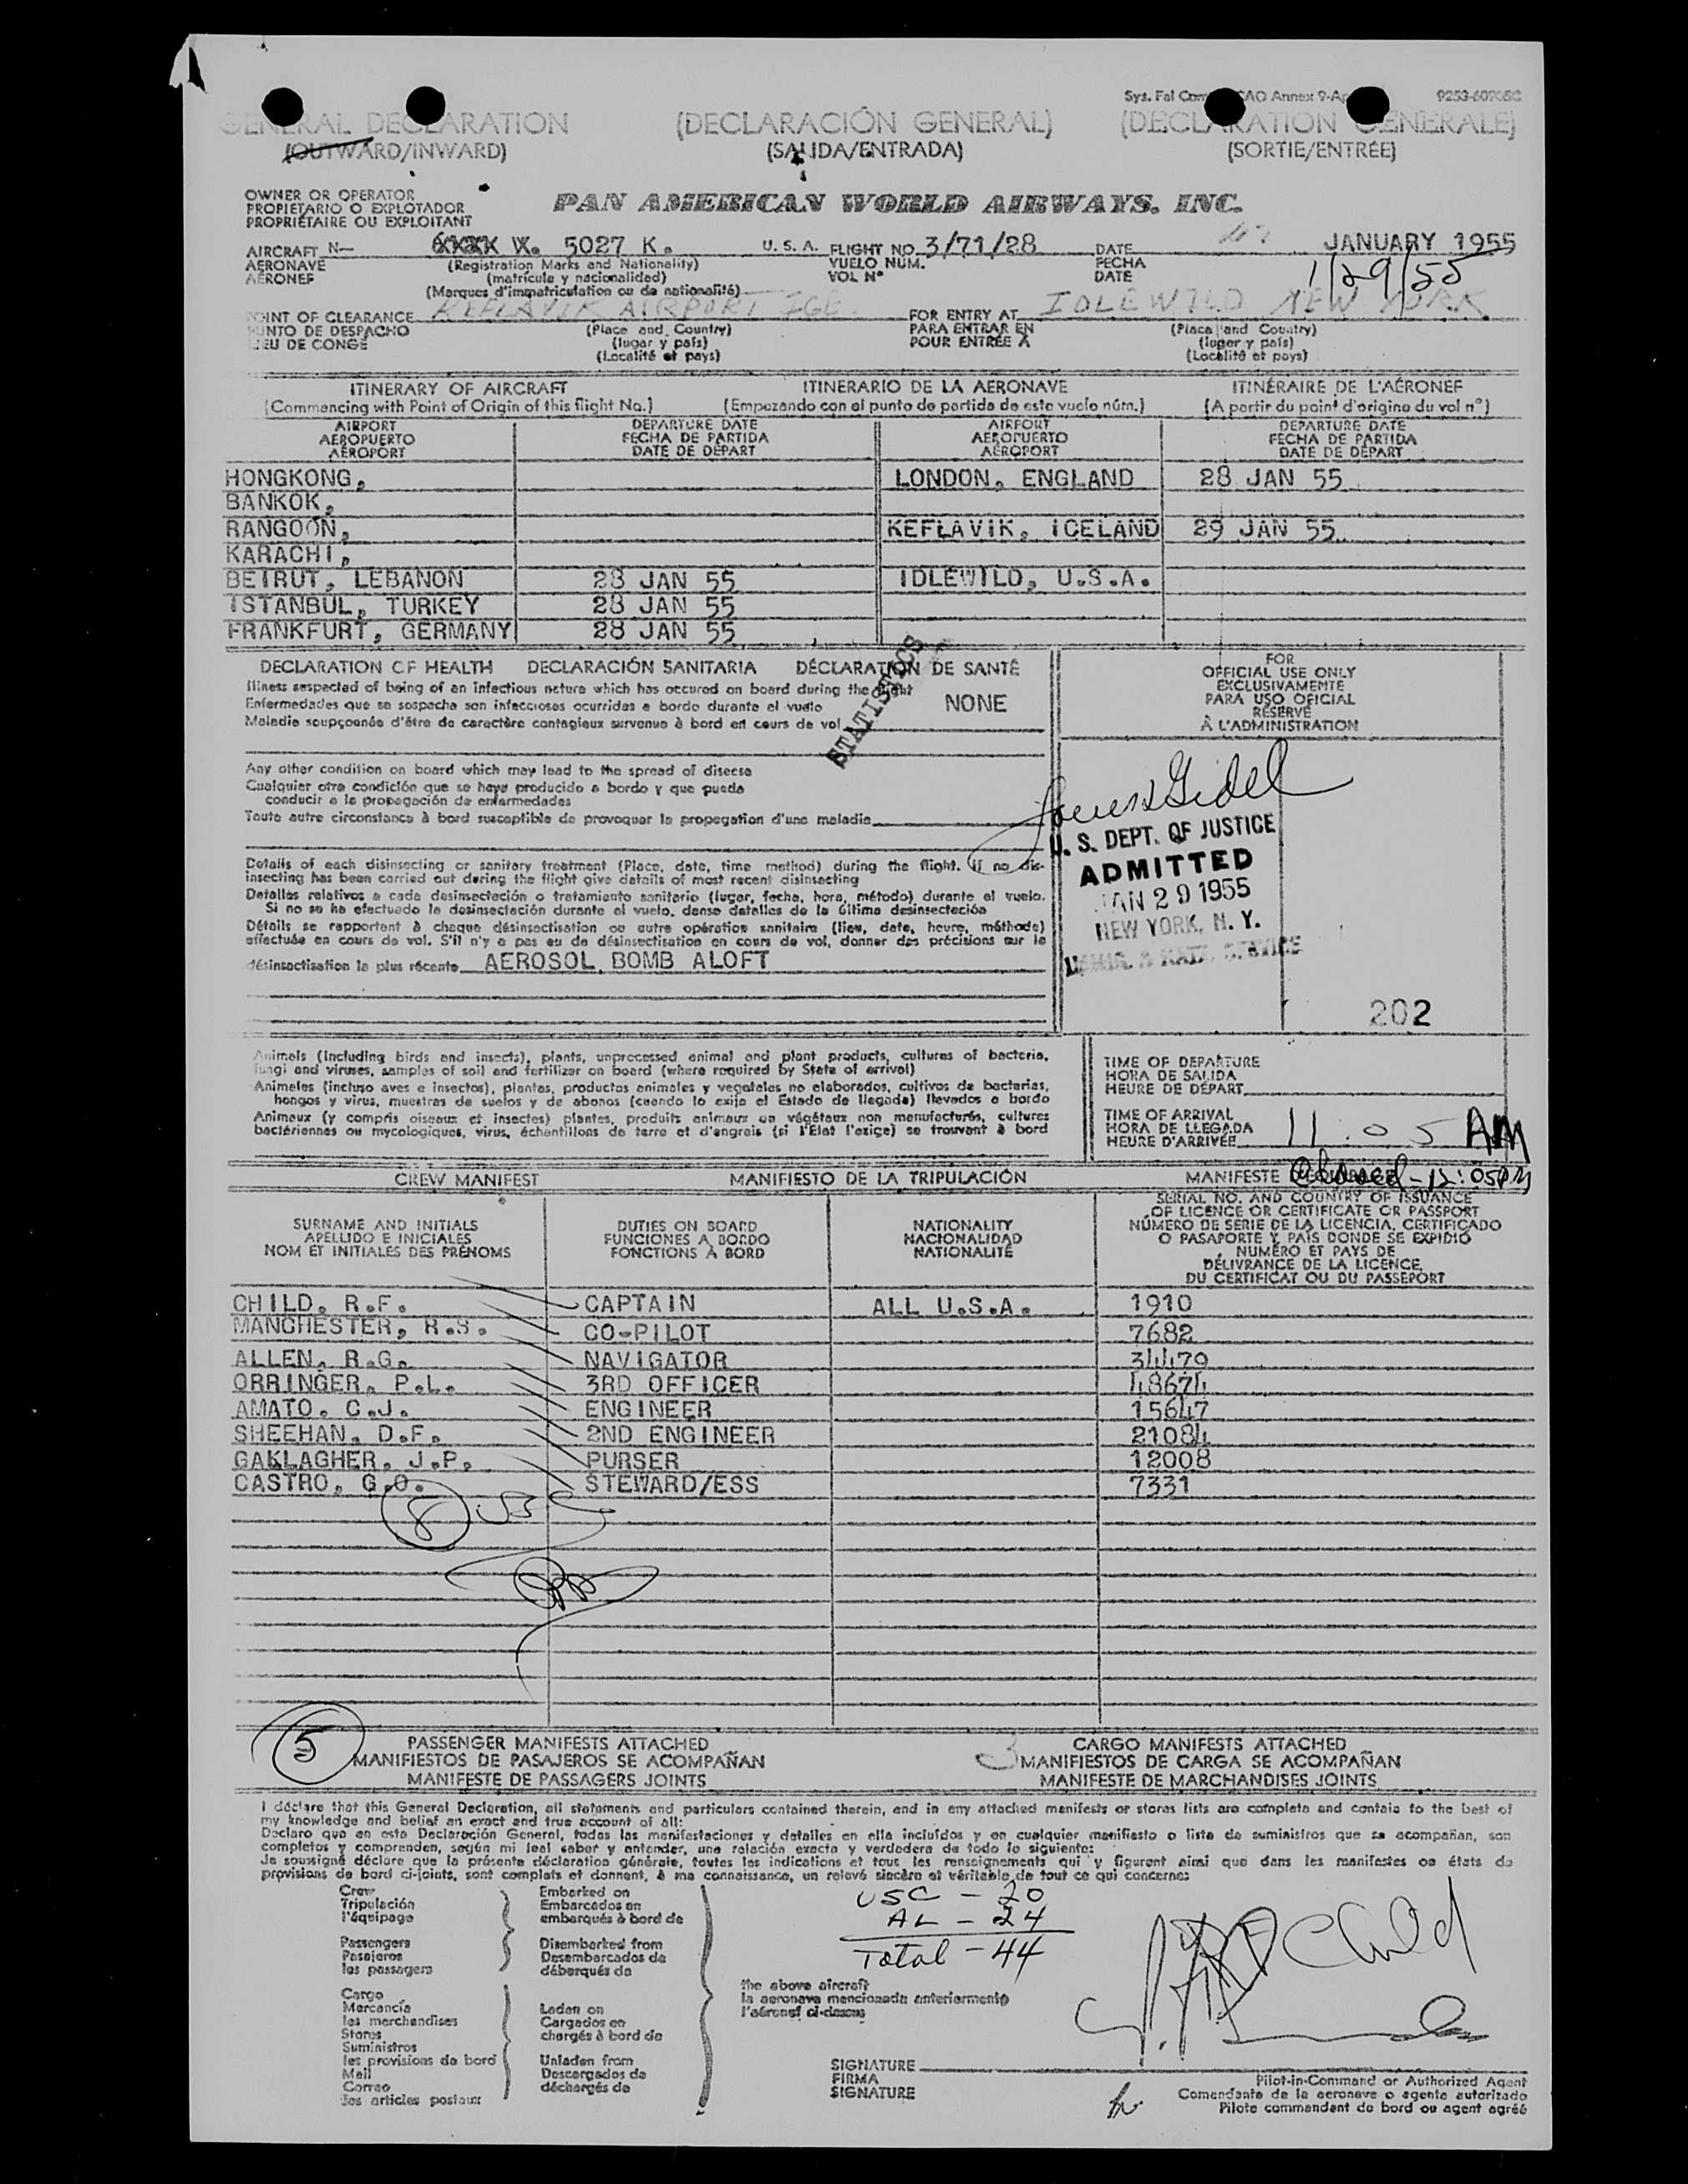 Sys. Fal Com AO Annex 9-Ap 9253-60705C
GENERAL DECLARATION (DECLARACIÓN GENERAL) (DECLARATION GENERALE)
(OUTWARD/INWARD) (SALIDA/ENTRADA) (SORTIE/ENTRÉE)
OWNER OR OPERATOR
PROPIETARIO O EXPLOTADOR
PROPRIÉTAIRE OU EXPLOITANT
PAN AMERICAN WORLD AIRWAYS, INC.
AIRCRAFT N— 5027 K. U. S. A. FLIGHT NO. 3/71/28 DATE JANUARY 1955
AERONAVE (Registration Marks and Nationality) VUELO NÚM. FECHA 1/29/55
AÉRONEF (matrícula y nacionalidad) VOL Nº DATE
(Marques d'immatriculation ou de nationalité)
POINT OF CLEARANCE KEFLAVIK AIRPORT ICE FOR ENTRY AT IDLEWILD NEW YORK
PUNTO DE DESPACHO (Place and Country) PARA ENTRAR EN (Place and Country)
LIEU DE CONGÉ (lugar y país) POUR ENTRÉE À (lugar y país)
(Localité et pays) (Localité et pays)
ITINERARY OF AIRCRAFT ITINERARIO DE LA AERONAVE ITINÉRAIRE DE L'AÉRONEF
(Commencing with Point of Origin of this flight No.) (Empezando con el punto de partida de este vuelo núm.) (A partir du point d'origine du vol nº)
AIRPORT DEPARTURE DATE AIRPORT DEPARTURE DATE
AEROPUERTO FECHA DE PARTIDA AEROPUERTO FECHA DE PARTIDA
AÉROPORT DATE DE DÉPART AÉROPORT DATE DE DÉPART
HONGKONG, LONDON, ENGLAND 28 JAN 55
BANKOK,
RANGOON, KEFLAVIK, ICELAND 29 JAN 55
KARACHI,
BEIRUT, LEBANON 28 JAN 55 IDLEWILD, U.S.A.
ISTANBUL, TURKEY 28 JAN 55
FRANKFURT, GERMANY 28 JAN 55
STATISTICS
DECLARATION OF HEALTH DECLARACIÓN SANITARIA DÉCLARATION DE SANTÉ
Illness suspected of being of an infectious nature which has occured on board during the flight
Enfermedades que se sospecha son infecciosas ocurridas a bordo durante el vuelo NONE
Maladie soupçonnée d'être de caractère contagieux survenue à bord en cours de vol
Any other condition on board which may lead to the spread of disease
Cualquier otra condición que se haya producido a bordo y que pueda
conducir a la propagación de enfermedades
Toute autre circonstance à bord susceptible de provoquer la propagation d'une maladie
Details of each disinsecting or sanitary treatment (Place, date, time method) during the flight. If no dis-
insecting has been carried out during the flight give details of most recent disinsecting
Detalles relativos a cada desinsectación o tratamiento sanitario (lugar, fecha, hora, método) durante el vuelo.
Si no se ha efectuado la desinsectación durante el vuelo, dense detalles de la última desinsectación
Détails se rapportent à chaque désinsectisation ou autre opération sanitaire (lieu, date, heure, méthode)
effectuée en cours de vol. S'il n'y a pas eu de désinsectisation en cours de vol, donner des précisions sur la
désinsectisation la plus récente AEROSOL BOMB ALOFT
FOR
OFFICIAL USE ONLY
EXCLUSIVAMENTE
PARA USO OFICIAL
RÉSERVÉ
À L'ADMINISTRATION
U. S. DEPT. OF JUSTICE
ADMITTED
JAN 29 1955
NEW YORK, N. Y.
202
Animals (including birds and insects), plants, unprocessed animal and plant products, cultures of bacteria,
fungi and viruses, samples of soil and fertilizer on board (where required by State of arrival)
Animales (incluso aves e insectos), plantas, productos animales y vegetales no elaborados, cultivos de bacterias,
hongos y virus, muestras de suelos y de abonos (cuando lo exija el Estado de llegada) llevados a bordo
Animaux (y compris oiseaux et insectes) plantes, produits animaux ou végétaux non manufacturés, cultures
bactériennes ou mycologiques, virus, échantillons de terre et d'engrais (si l'État l'exige) se trouvant à bord
TIME OF DEPARTURE
HORA DE SALIDA
HEURE DE DÉPART
TIME OF ARRIVAL
HORA DE LLEGADA 11:05 AM
HEURE D'ARRIVÉE
CREW MANIFEST MANIFIESTO DE LA TRIPULACIÓN MANIFESTE - 12:05PM
SURNAME AND INITIALS
APELLIDO E INICIALES
NOM ET INITIALES DES PRÉNOMS
DUTIES ON BOARD
FUNCIONES A BORDO
FONCTIONS À BORD
NATIONALITY
NACIONALIDAD
NATIONALITÉ
SERIAL NO. AND COUNTRY OF ISSUANCE
OF LICENCE OR CERTIFICATE OR PASSPORT
NÚMERO DE SERIE DE LA LICENCIA, CERTIFICADO
O PASAPORTE Y PAÍS DONDE SE EXPIDIÓ
NUMÉRO ET PAYS DE
DÉLIVRANCE DE LA LICENCE,
DU CERTIFICAT OU DU PASSEPORT
CHILD, R.F. CAPTAIN ALL U.S.A. 1910
MANCHESTER, R.S. CO-PILOT 7682
ALLEN, R.G. NAVIGATOR 34479
ORRINGER, P.L. 3RD OFFICER 48674
AMATO, C.J. ENGINEER 15647
SHEEHAN, D.F. 2ND ENGINEER 21084
GAKLAGHER, J.P. PURSER 12008
CASTRO, G.O. STEWARD/ESS 7331
8
5 PASSENGER MANIFESTS ATTACHED 3 CARGO MANIFESTS ATTACHED
MANIFIESTOS DE PASAJEROS SE ACOMPAÑAN MANIFIESTOS DE CARGA SE ACOMPAÑAN
MANIFESTE DE PASSAGERS JOINTS MANIFESTE DE MARCHANDISES JOINTS
I declare that this General Declaration, all statements and particulars contained therein, and in any attached manifests or stores lists are complete and contain to the best of
my knowledge and belief an exact and true account of all:
Declaro que en esta Declaración General, todas las manifestaciones y detalles en ella incluídos y en cualquier manifiesto o lista de suministros que se acompañan, son
completos y comprenden, según mi leal saber y entender, una relación exacta y verdadera de todo lo siguiente:
Je soussigné déclare que la présente déclaration générale, toutes les indications et tous les renseignements qui y figurent ainsi que dans les manifestes ou états de
provisions de bord ci-joints, sont complets et donnent, à ma connaissance, un relevé sincère et véritable de tout ce qui concerne:
Crew
Tripulación
l'équipage
Passengers
Pasajeros
les passagers
Cargo
Mercancía
les marchandises
Stores
Suministros
les provisions de bord
Mail
Correo
les articles postaux
Embarked on
Embarcados en
embarqués à bord de
Disembarked from
Desembarcados de
débarqués de
Laden on
Cargados en
chargés à bord de
Unladen from
Descargados de
déchargés de
USC - 20
AL - 24
Total - 44
the above aircraft
la aeronave mencionada anteriormente
l'aéronef ci-dessus
RF Child
SIGNATURE
FIRMA
SIGNATURE
Pilot-in-Command or Authorized Agent
Comandante de la aeronave o agente autorizado
Pilote commandant de bord ou agent agréé